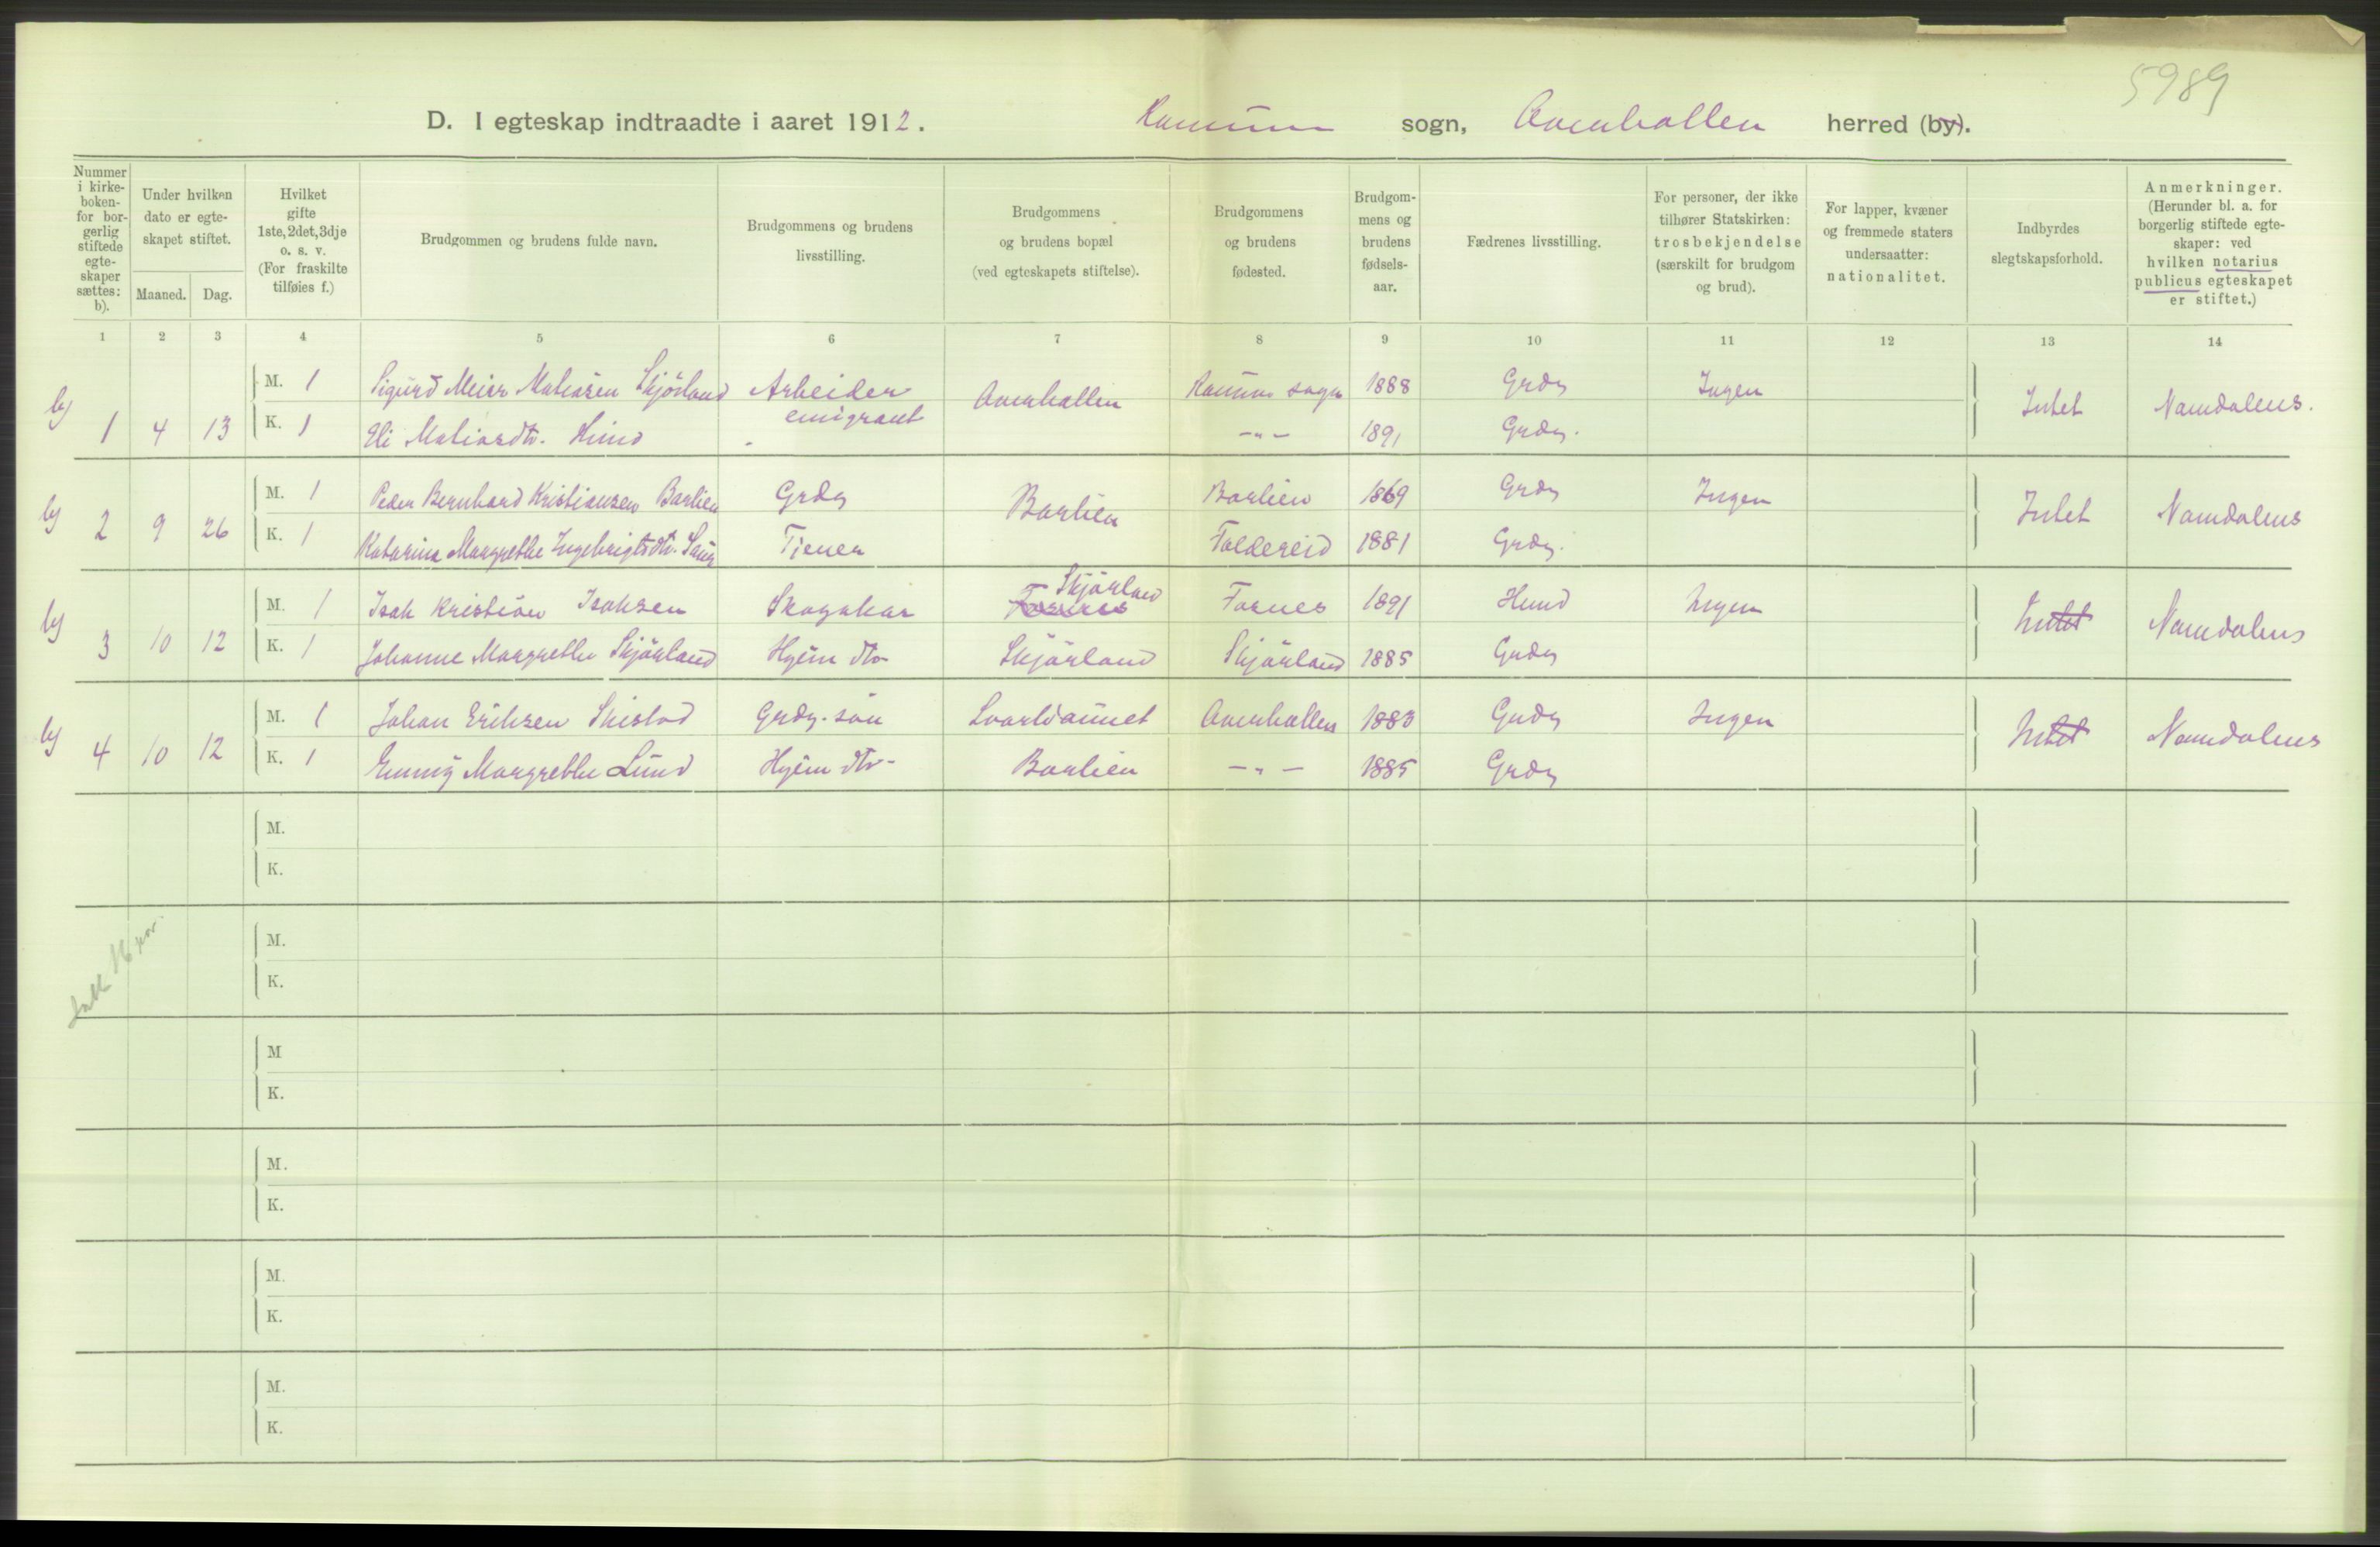 5989
D. I egteskap indtraadte i aaret 1912. Ranum sogn, Overhallen herred (by).
Nummer i kirke- boken- for bor- gerlig stiftede egte- skaper sættes: b).
Under hvilken dato er egte- skapet stiftet.
Maaned. Dag.
Hvilket gifte 1ste, 2det, 3dje o. s. v. (For fraskilte tilføies f.)
Brudgommen og brudens fulde navn.
Brudgommens og brudens livsstilling.
Brudgommens og brudens bopæl (ved egteskapets stiftelse).
Brudgommens og brudens fødested.
Brudgom- mens og brudens fødsels- aar.
Fædrenes livsstilling.
For personer, der ikke tilhører Statskirken: trosbekjendelse (særskilt for brudgom og brud).
For lapper, kvæner og fremmede staters undersaatter: nationalitet.
Indbyrdes slegtskapsforhold.
Anmerkninger. (Herunder bl. a. for borgerlig stiftede egte- skaper: ved hvilken notarius publicus egteskapet er stiftet.)
1 2 3 4 5 6 7 8 9 10 11 12 13 14
b) 1 4 13 M. 1 Sigurd Meier Matiasen Skjörland Arbeider emigrant Overhallen Ranum sogn 1888 Grdr Ingen Intet Namdalens.
K. 1 Eli Matiasdtr. Hund - -"- 1891 Grdr.
b) 2 9 26 M. 1 Peder Bernhard Kristiansen Barlien Grdr Barlien Barlien 1869 Grdr Ingen Intet Namdalens
K. 1 Katarina Margrethe Ingebrigtsdtr. Tjener Foldereid 1881 Grdr.
b) 3 10 12 M. 1 Isak Kristian Isaksen Skogskar Fosnes Skjörland Fosnes 1891 Hmd Ingen Intet Namdalens
K. 1 Johanne Margrethe Skjörland Hjem dtr Skjörland Skjörland 1885 Grdr
b) 4 10 12 M. 1 Johan Eriksen Skistad Grdr. sön Svarliaunet Overhallen 1883 Grdr Ingen Intet Namdalens
K. 1 Emmy Margrethe Lund Hjem dtr- Barlien -"- 1885 Grdr
M.
K.
M.
K.
M
K.
M.
K.
M.
K.
M.
K.